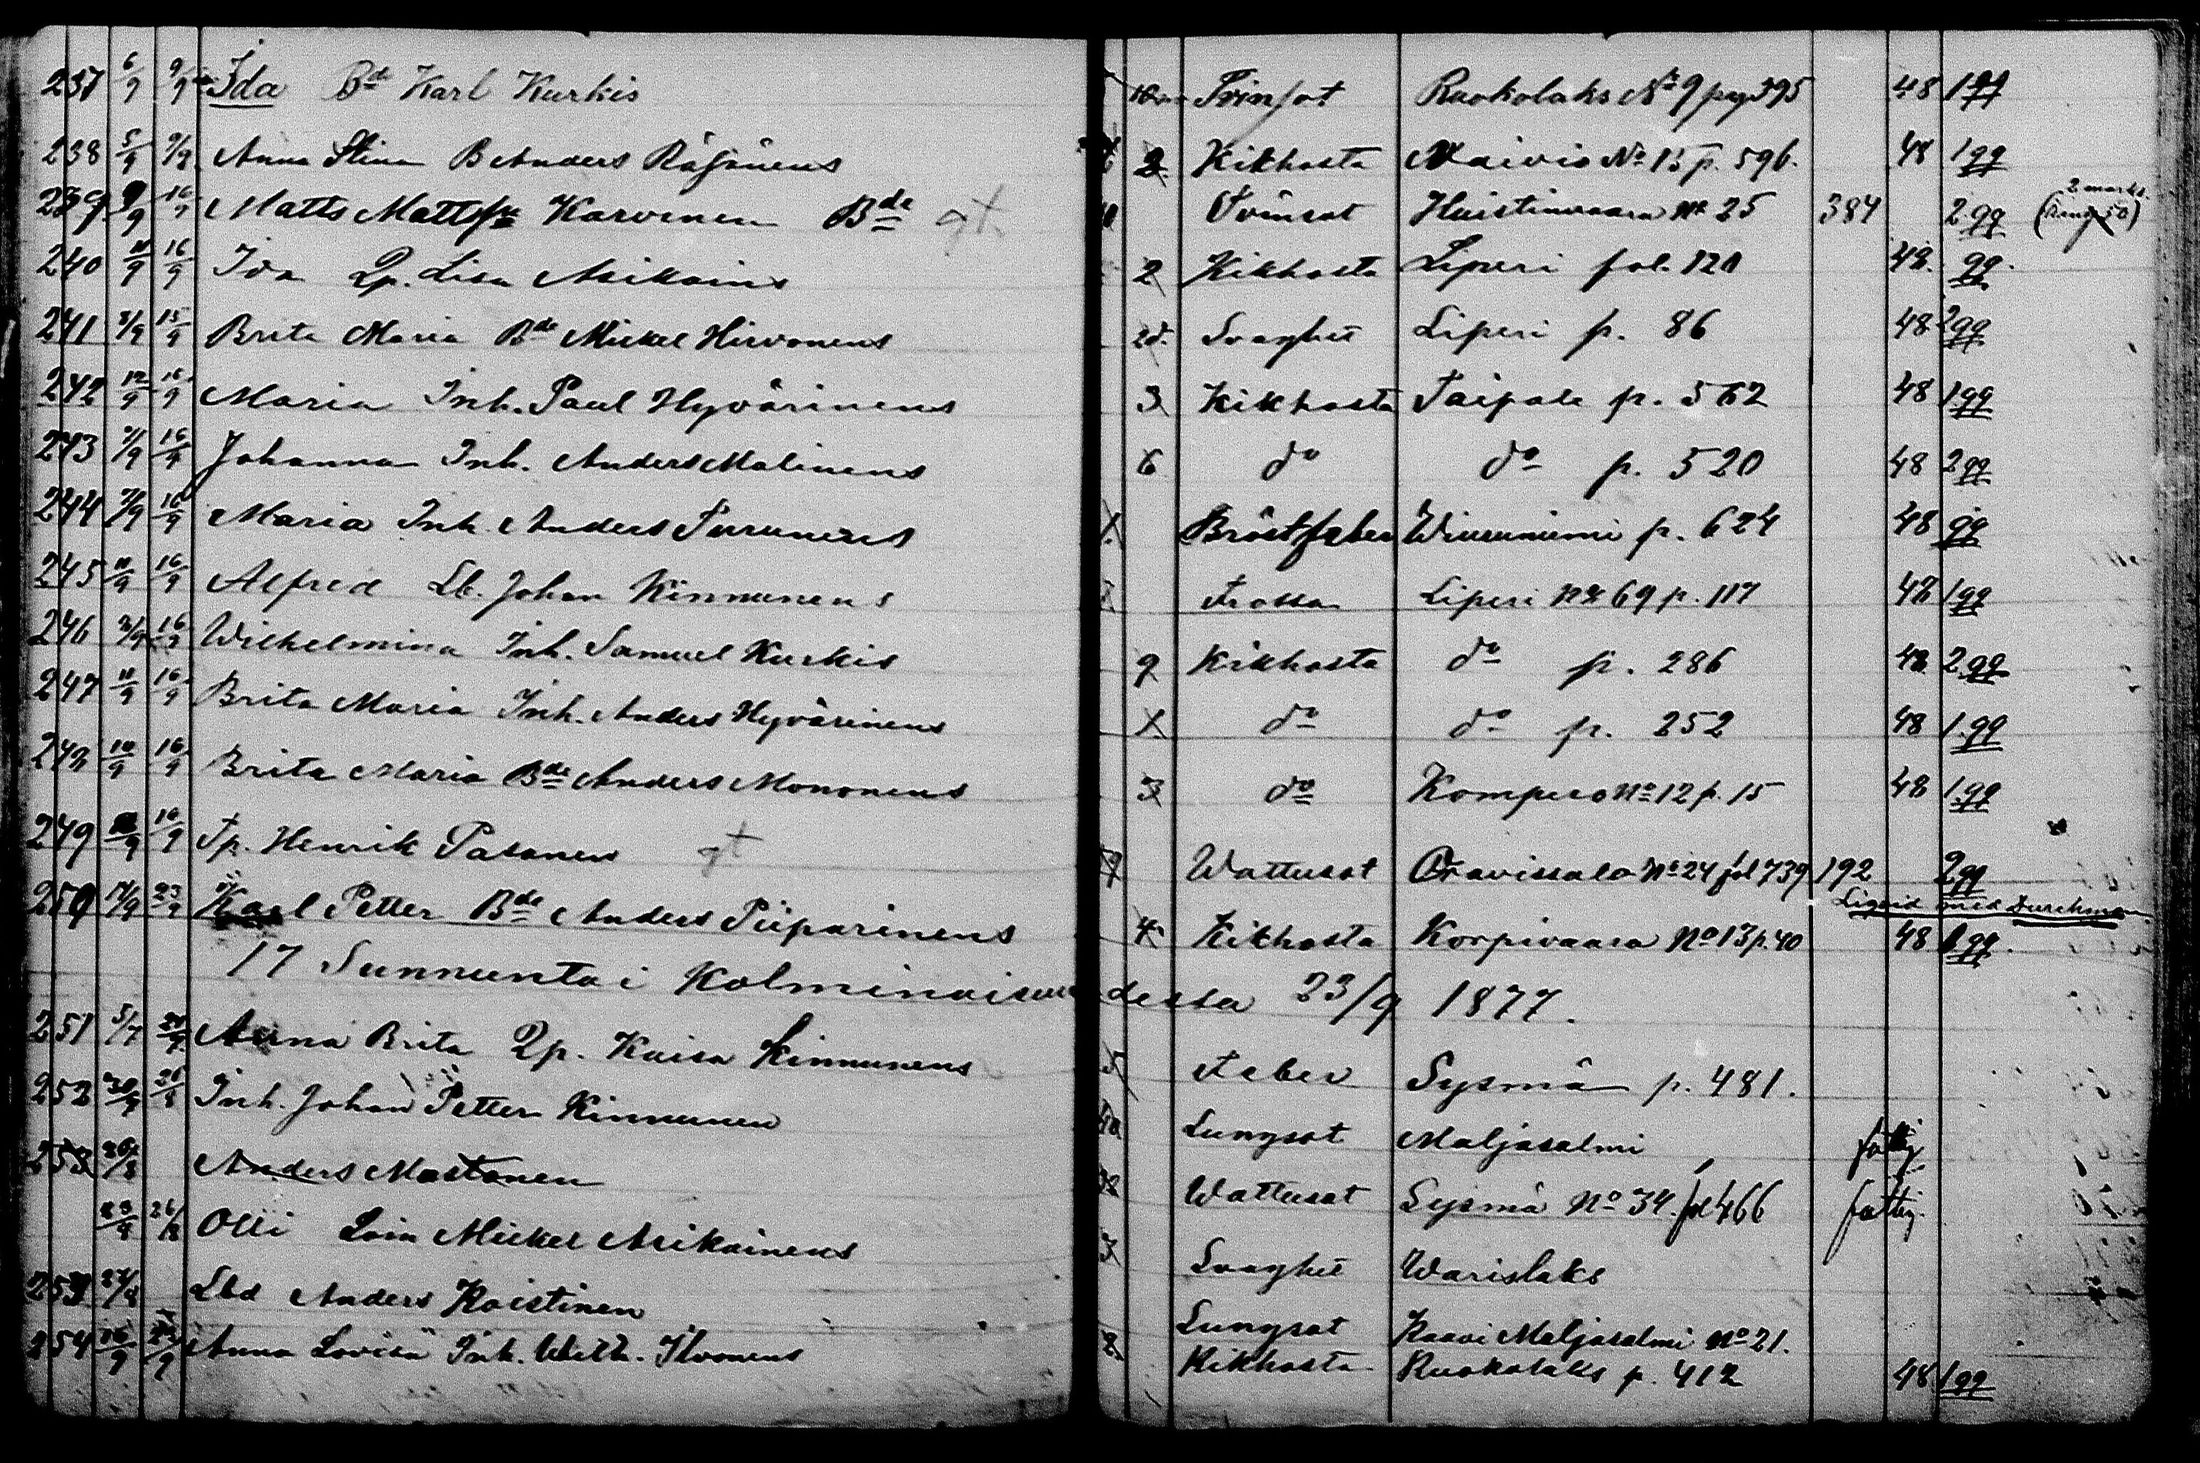 237 6/9 9/9 Ida Bde Karl Kurkis Tvinsot Ruokolaks No 9 pag 395 48 1 qq
238 5/9 9/9 Anna Stina B Anders Räsänens 2 Kikhosta Maivia No 15 p. 596. 48 1 qq
239 9/9 16/9 Matts Mattss Karvinen Bde gt Tvinsot Huistinvaara No 25 384 2 qq 2 marks (Ring 50)
240 11/9 16/9 Ida Qp. Lisa Asikains 2 Kikhosta Liperi fol. 121 48. qq.
241 9/9 15/9 Brita Maria Bde Mickel Hirvonens 2d. Svaghet Liperi p. 86 48 2 qq
242 12/9 16/9 Maria Inh. Paul Hyvärinens 3 Kikhosta Taipale p. 562 48 1 qq
243 11/9 16/9 Johanna Inh. Anders Malinens 6 do do p. 520 48 2 qq
244 16/9 Maria Inh. Anders Turunens Bröstfeber Wiuruniemi p. 624 48 qq
245 11/9 16/9 Alfred Lb. Johan Kinnunens Trossa Liperi No 69 p. 117 48 1 qq
246 16/9 Wilhelmina Inh. Samuel Kurkis 9 Kikhosta do p. 286 48 2 qq
247 11/9 16/9 Brita Maria Inh. Anders Hyvärinens 1 do do p. 252 48 1. qq
248 10/9 16/9 Brita Maria Bde Anders Mononens 3 do Kompero No 12 p. 15 48 1 qq
249 16/9 Tp. Henrik Pasanen gt Wattusot Oravissalo No 24 fol 739 192 2 qq
Liqvid med Durchman
250 17/9 23/9 Karl Petter Bde Anders Piiparinens 4 Kikhosta Korpivaara No 13 p. 40 48 1 qq.
17 Sunnuntai Kolminaisuudesta 23/9 1877.
251 5/7 Anna Brita Qp. Kaisa Kinnunens 5 Feber Sysmä p. 481.
252 Inh. Johan Petter Kinnunen Lungsot Maljasalmi fattig
253 Anders Mustonen Wattusot Sysmä No 34. fol 466 fattig.
23/9 Olli Loin Mickel Asikainens 3 Svaghet Warislaks
253 Lbd Anders Koistinen Lungsot Kaavi Maljasalmi No 21.
254 16/9 23/9 Anna Lovisa Inh. Wilh. Ilvonens 2 Kikhosta Ruokolaks p. 412 48 1 qq